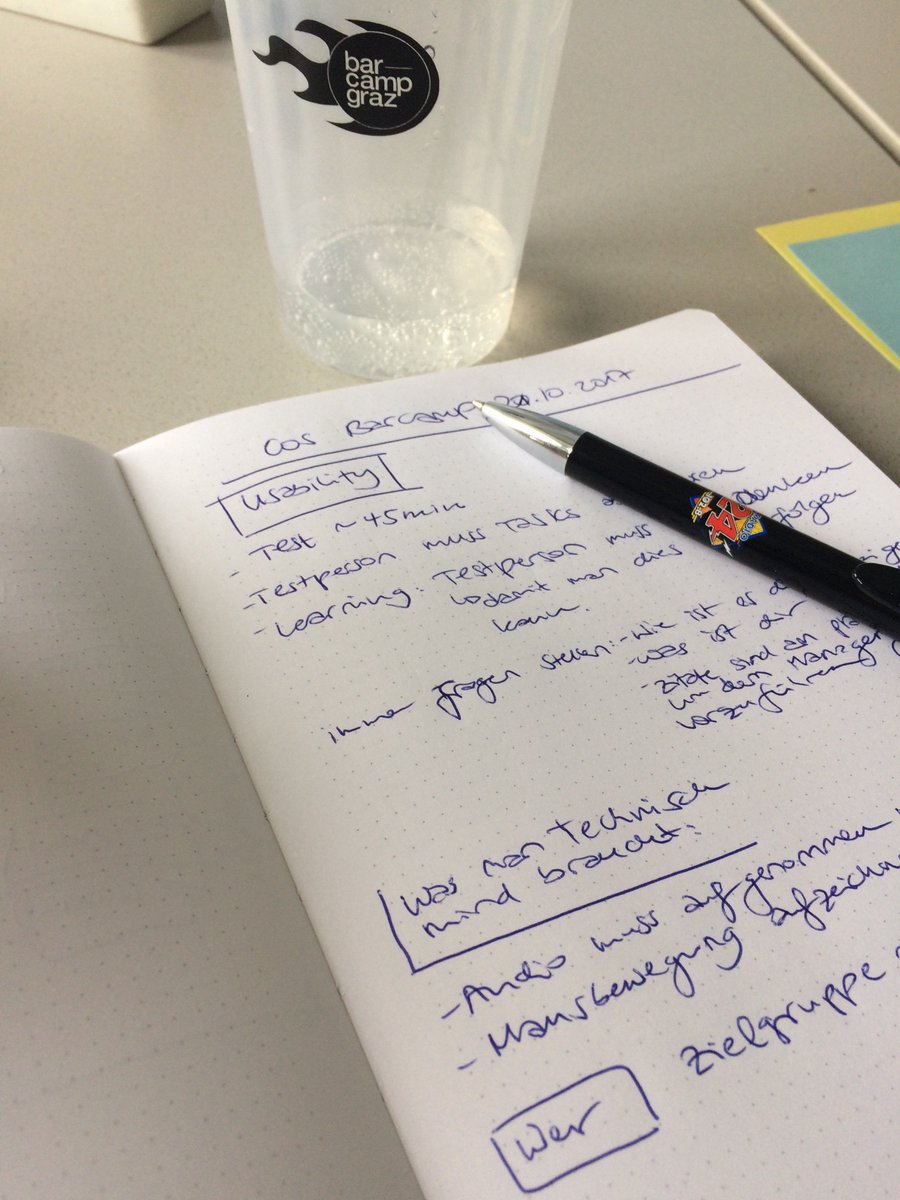 bar
camp
graz
Cos Barcamp .10.2017
Usability
- Test ~ 45min
- Testperson muss Tasks
- Learning: Testperson muss denken
damit man dies folgen
kann.
immer fragen stellen: - Wie ist es
- Was ist dir
- Zitate sind an
um dem Manager
vorzuführen
Was man Technisch
mind braucht:
- Audio muss aufgenommen
- Mausbewegung
Wer Zielgruppe
24